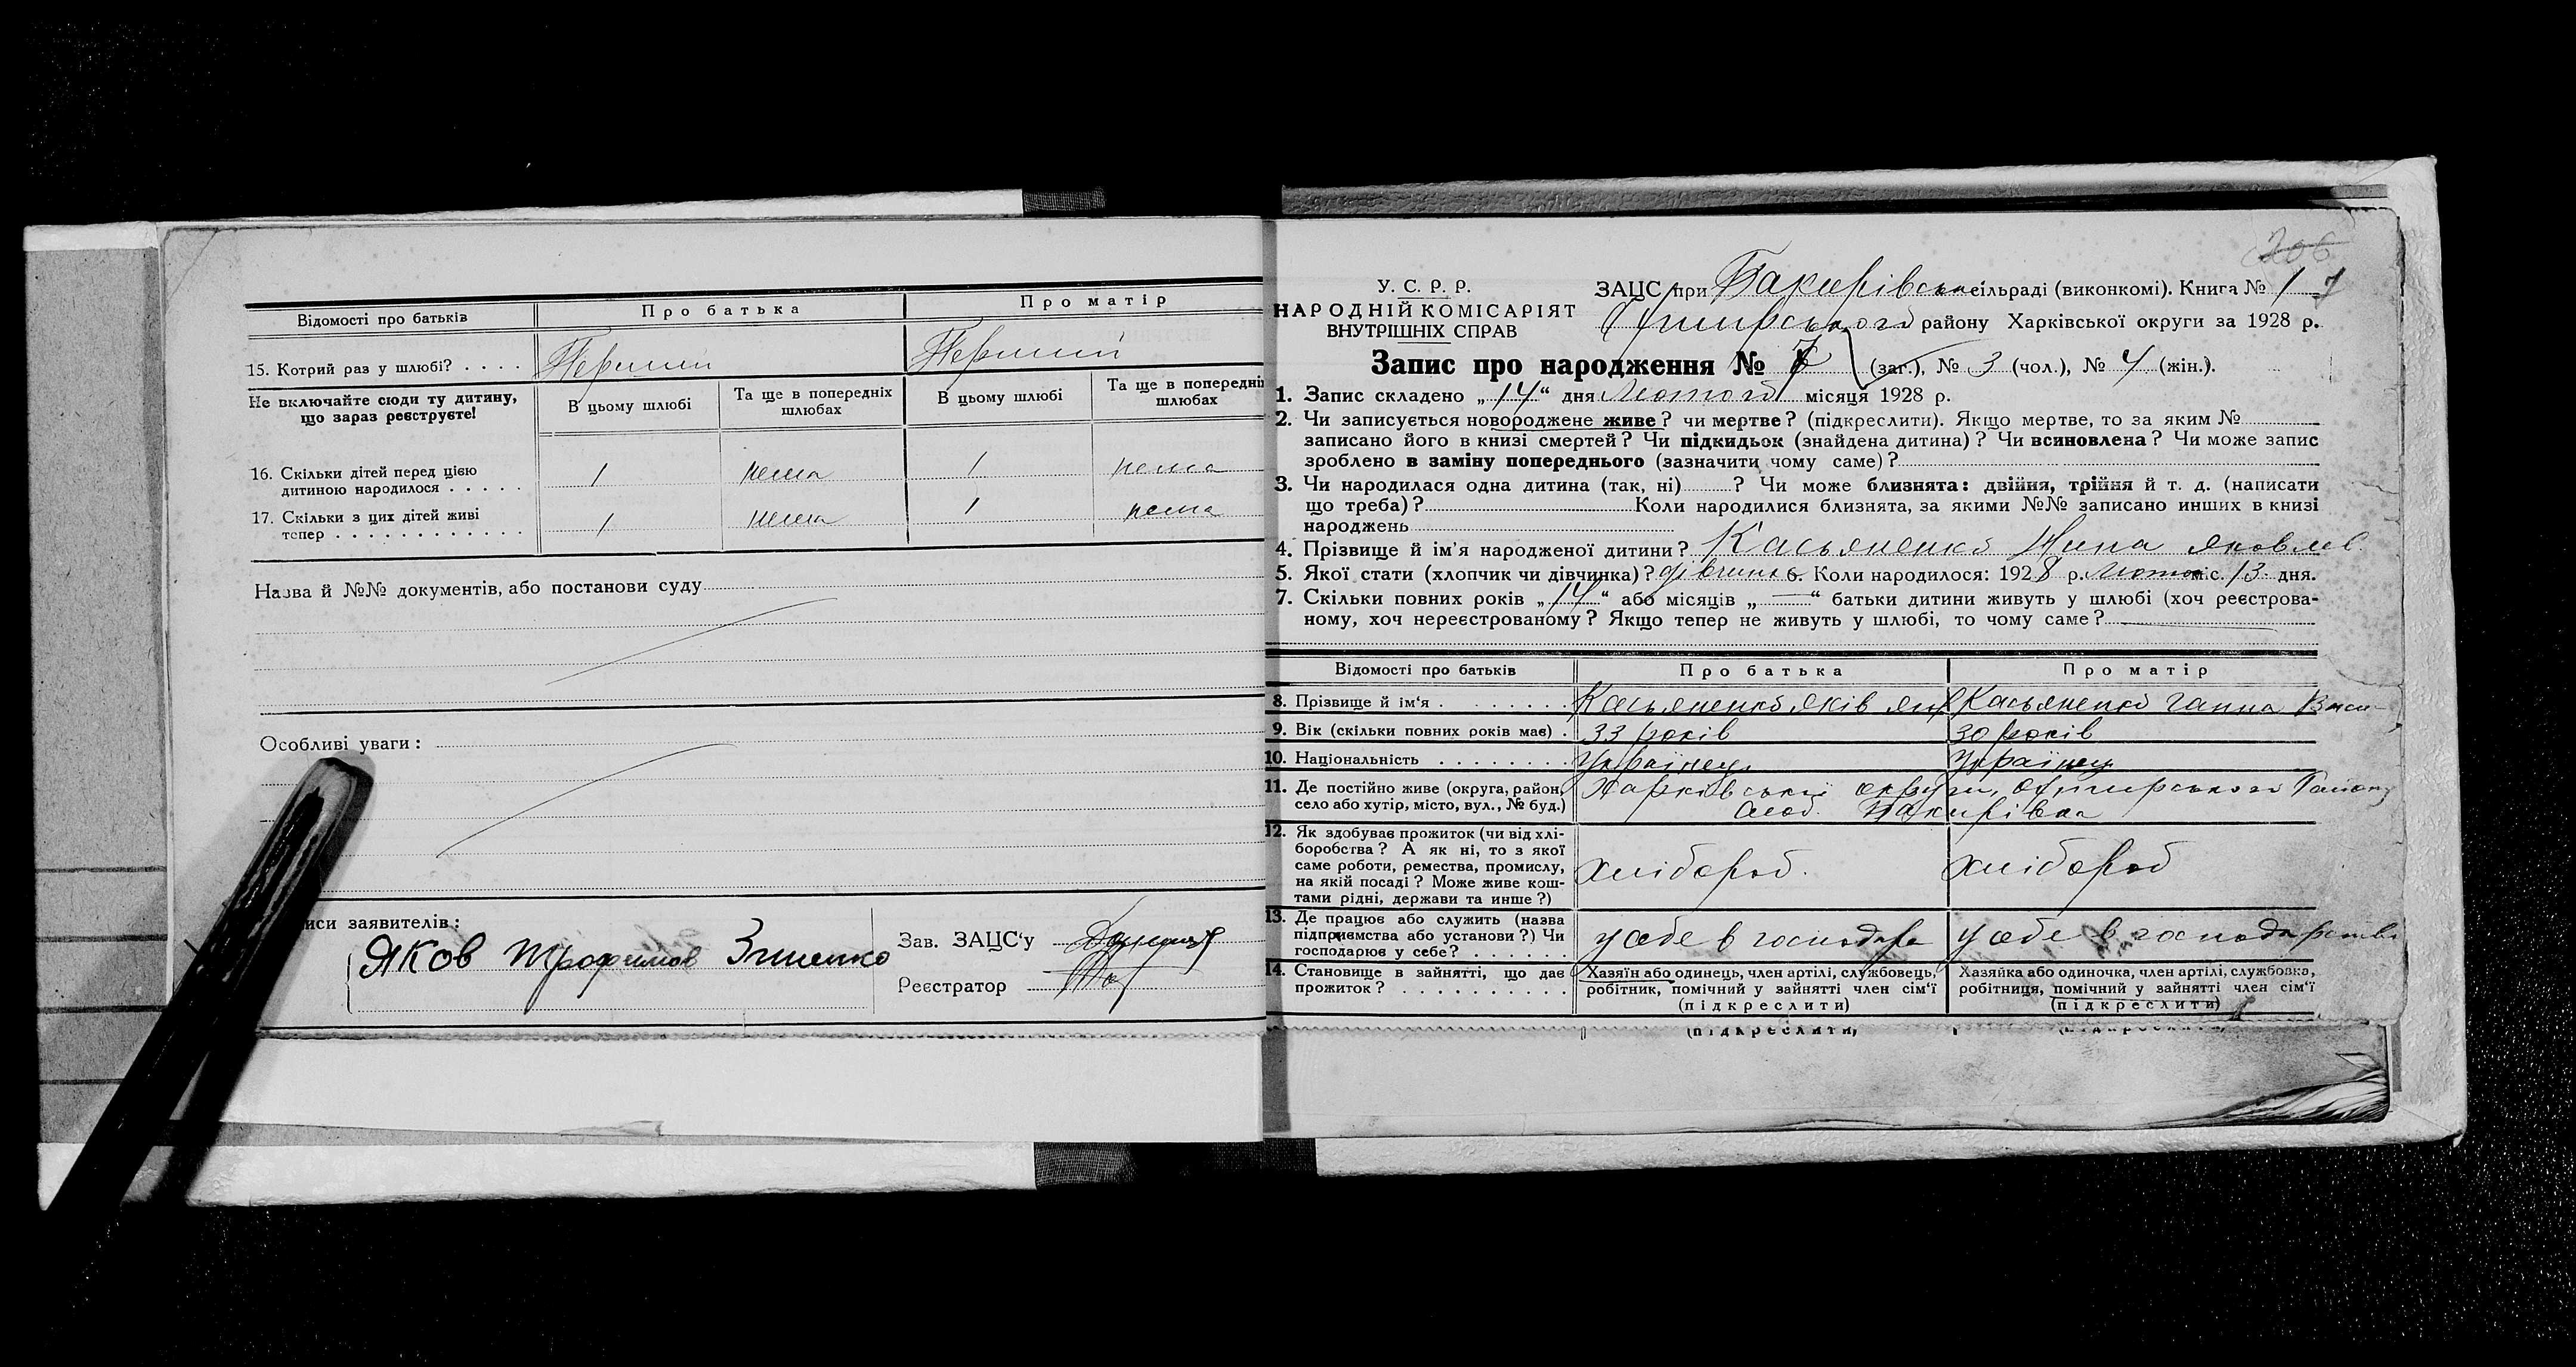 Відомості про батьків
Про батька
Про матір
15. Котрий раз у шлюбі? . . . .
Перший
Перший
Не включайте сюди ту дитину,
що зараз реєструєте!
В цьому шлюбі
Та ще в попередніх
шлюбах
В цьому шлюбі
Та ще в попередніх
шлюбах
16. Скільки дітей перед цією
дитиною народилося . . . . .
1
нема
1
нема
17. Скільки з цих дітей живі
тепер . . . . . . . . . . . .
1
нема
1
нема
Назва й №№ документів, або постанови суду
Особливі уваги:
иси заявителів:
Яков Трофимов
Зав. ЗАЦС'у
Реєстратор
206
У. С. Р. Р.
НАРОДНІЙ КОМІСАРІЯТ
ВНУТРІШНІХ СПРАВ
ЗАЦС при Бакирівськ сільраді (виконкомі). Книга № 1 7
району Харківської округи за 1928 р.
Запис про народження № 7 (заг.), № 3 (чол.), № 4 (жін.).
1. Запис складено „14“ дня Лютого місяця 1928 р.
2. Чи записується новороджене живе? чи мертве? (підкреслити). Якщо мертве, то за яким №
записано його в книзі смертей? Чи підкидьок (знайдена дитина)? Чи всиновлена? Чи може запис
зроблено в заміну попереднього (зазначити чому саме)?
3. Чи народилася одна дитина (так, ні) ? Чи може близнята: двійня, трійня й т. д. (написати
що треба)? Коли народилися близнята, за якими №№ записано инших в книзі
народжень
4. Прізвище й ім'я народженої дитини? Касьяненко Нина Яковлев.
5. Якої стати (хлопчик чи дівчинка)? дівчинка 6. Коли народилося: 1928 р. Лютог міс. 13 дня.
7. Скільки повних років „14“ або місяців „—“ батьки дитини живуть у шлюбі (хоч реєстрова-
ному, хоч нереєстрованому? Якщо тепер не живуть у шлюбі, то чому саме?
Відомості про батьків
Про батька
Про матір
8. Прізвище й ім'я . . . . . . . .
Касьяненко Яків
Касьяненко Ганна Васи-
9. Вік (скільки повних років має) .
33 років
30 років
10. Національність . . . . . . . .
Українець
Українец
11. Де постійно живе (округа, район,
село або хутір, місто, вул., № буд.)
Харківської округи, Охтирського Району
Слоб. Бакирівка
12. Як здобуває прожиток (чи від хлі-
боробства? А як ні, то з якої
саме роботи, ремества, промислу,
на якій посаді? Може живе кош-
тами рідні, держави та инше?)
хлібороб.
хлібороб
13. Де працює або служить (назва
підприємства або установи?) Чи
господарює у себе? . . . . . .
у себе в господарс
у себе в господарстві
14. Становище в зайнятті, що дає
прожиток? . . . . . . . . . .
Хазяїн або одинець, член артілі, службовець,
робітник, помічний у зайнятті член сім'ї
(підкреслити)
Хазяйка або одиночка, член артілі, службовка,
робітниця, помічний у зайнятті член сім'ї
(підкреслити)
(підкреслити)